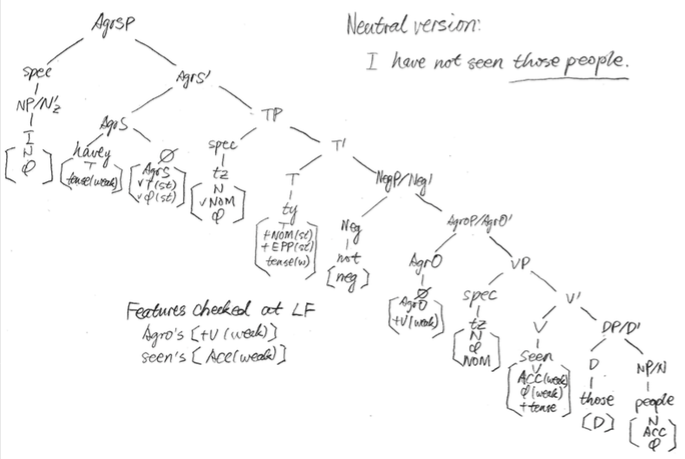 AgrSP
Neutral version:
I have not seen those people.
spec
AgrS'
NP/N'z
AgrS
TP
I
havey
∅
spec
T'
N
T
AgrS
φ
tense(weak)
vT(st)
vφ(st)
tz
T
NegP/Neg'
N
vNOM
φ
ty
T
+NOM(st)
+EPP(st)
tense(w)
Neg
not
[neg]
AgroP/AgrO'
AgrO
∅
AgrO
+V(weak)
VP
spec
tz
N
φ
NOM
V'
V
seen
V
ACC(weak)
φ(weak)
+tense
DP/D'
D
those
[D]
NP/N
people
N
ACC
φ
Features checked at LF
Agro's [+V (weak)]
seen's [Acc(weak)]